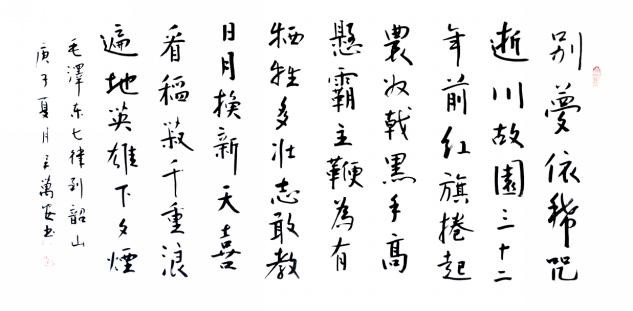 别夢依稀咒
逝川故園三十二
年前紅旗捲起
農奴戟黑手高
懸霸主鞭為有
牺牲多壮志敢教
日月換新天喜
看稻菽千重浪
遍地英雄下夕煙
毛澤东七律到韶山
庚子夏月王萬安书